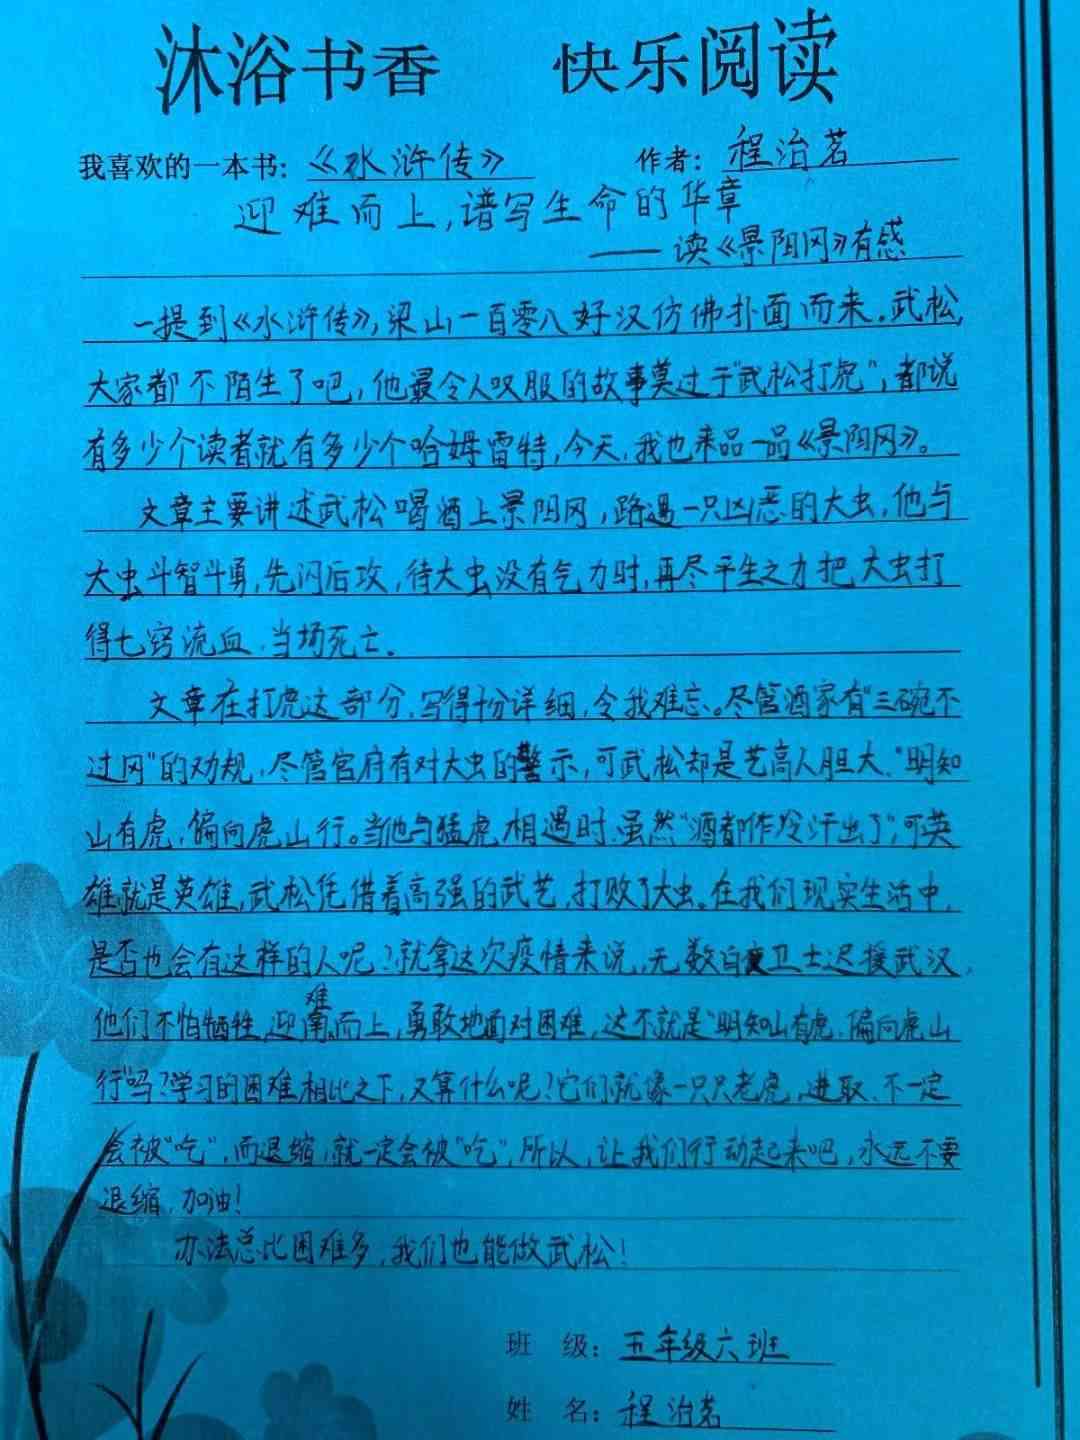 沐浴书香 快乐阅读
我喜欢的一本书：《水浒传》 作者：程治茗
迎难而上，谱写生命的华章
——读《景阳冈》有感
一提到《水浒传》，梁山一百零八好汉仿佛扑面而来。武松，
大家都不陌生了吧，他最令人叹服的故事莫过于"武松打虎"，都说
有多少个读者就有多少个哈姆雷特，今天，我也来品一品《景阳冈》。
文章主要讲述武松喝酒上景阳冈，路遇一只凶恶的大虫，他与
大虫斗智斗勇，先闪后攻，待大虫没有气力时，再尽平生之力把大虫打
得七窍流血，当场死亡。
文章在打虎这部分，写得十分详细，令我难忘。尽管酒家有"三碗不
过冈"的劝规，尽管官府有对大虫的警示，可武松却是艺高人胆大，"明知
山有虎，偏向虎山行。当他与猛虎相遇时，虽然"酒都作冷汗出了"，可英
雄就是英雄，武松凭借着高强的武艺，打败了大虫。在我们现实生活中，
是否也会有这样的人呢？就拿这次疫情来说，无数白衣卫士迟援武汉，
他们不怕牺牲，迎难而上，勇敢地面对困难，这不就是"明知山有虎，偏向虎山
行"吗？学习的困难相比之下，又算什么呢？它们就像一只只老虎，进取，不一定
会被"吃"，而退缩，就一定会被"吃"，所以，让我们行动起来吧，永远不要
退缩，加油！
办法总比困难多，我们也能做武松！
班 级：五年级六班
姓 名：程治茗